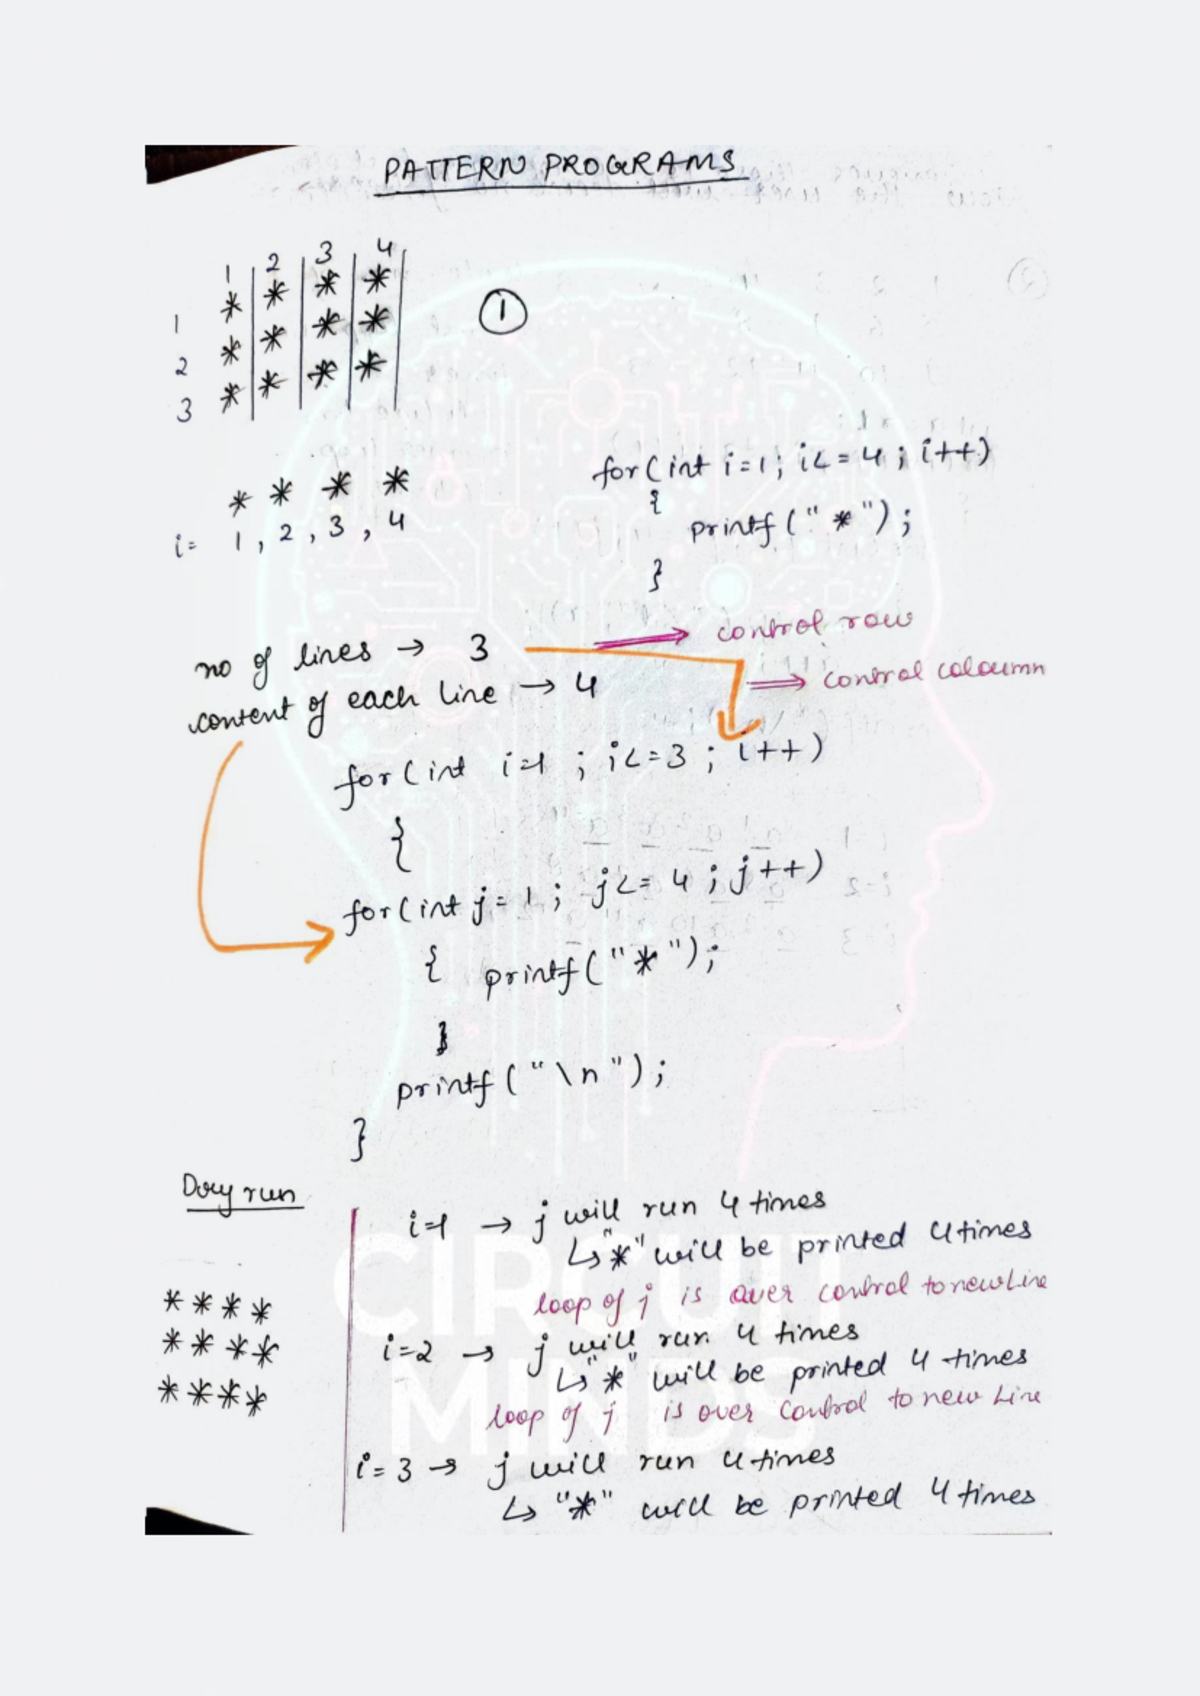 PATTERN PROGRAMS
1 2 3 4
1 * * * *
2 * * * *
3 * * * *
①
* * * *
i= 1, 2, 3, 4
for(int i=1; i<=4; i++)
{
printf("*");
}
no of lines → 3 ⇒ control row
content of each line → 4 ⇒ control coloumn
for(int i=1 ; i<=3 ; i++)
{
for(int j=1 ; j<=4 ; j++)
{ printf("*");
}
printf("\n");
}
Dry run
i=1 → j will run 4 times
↳ "*" will be printed 4 times
loop of j is over control to new line
i=2 → j will run 4 times
↳ "*" will be printed 4 times
loop of j is over control to new line
i=3 → j will run 4 times
↳ "*" will be printed 4 times
* * * *
* * * *
* * * *
CIRCUIT
MINDS